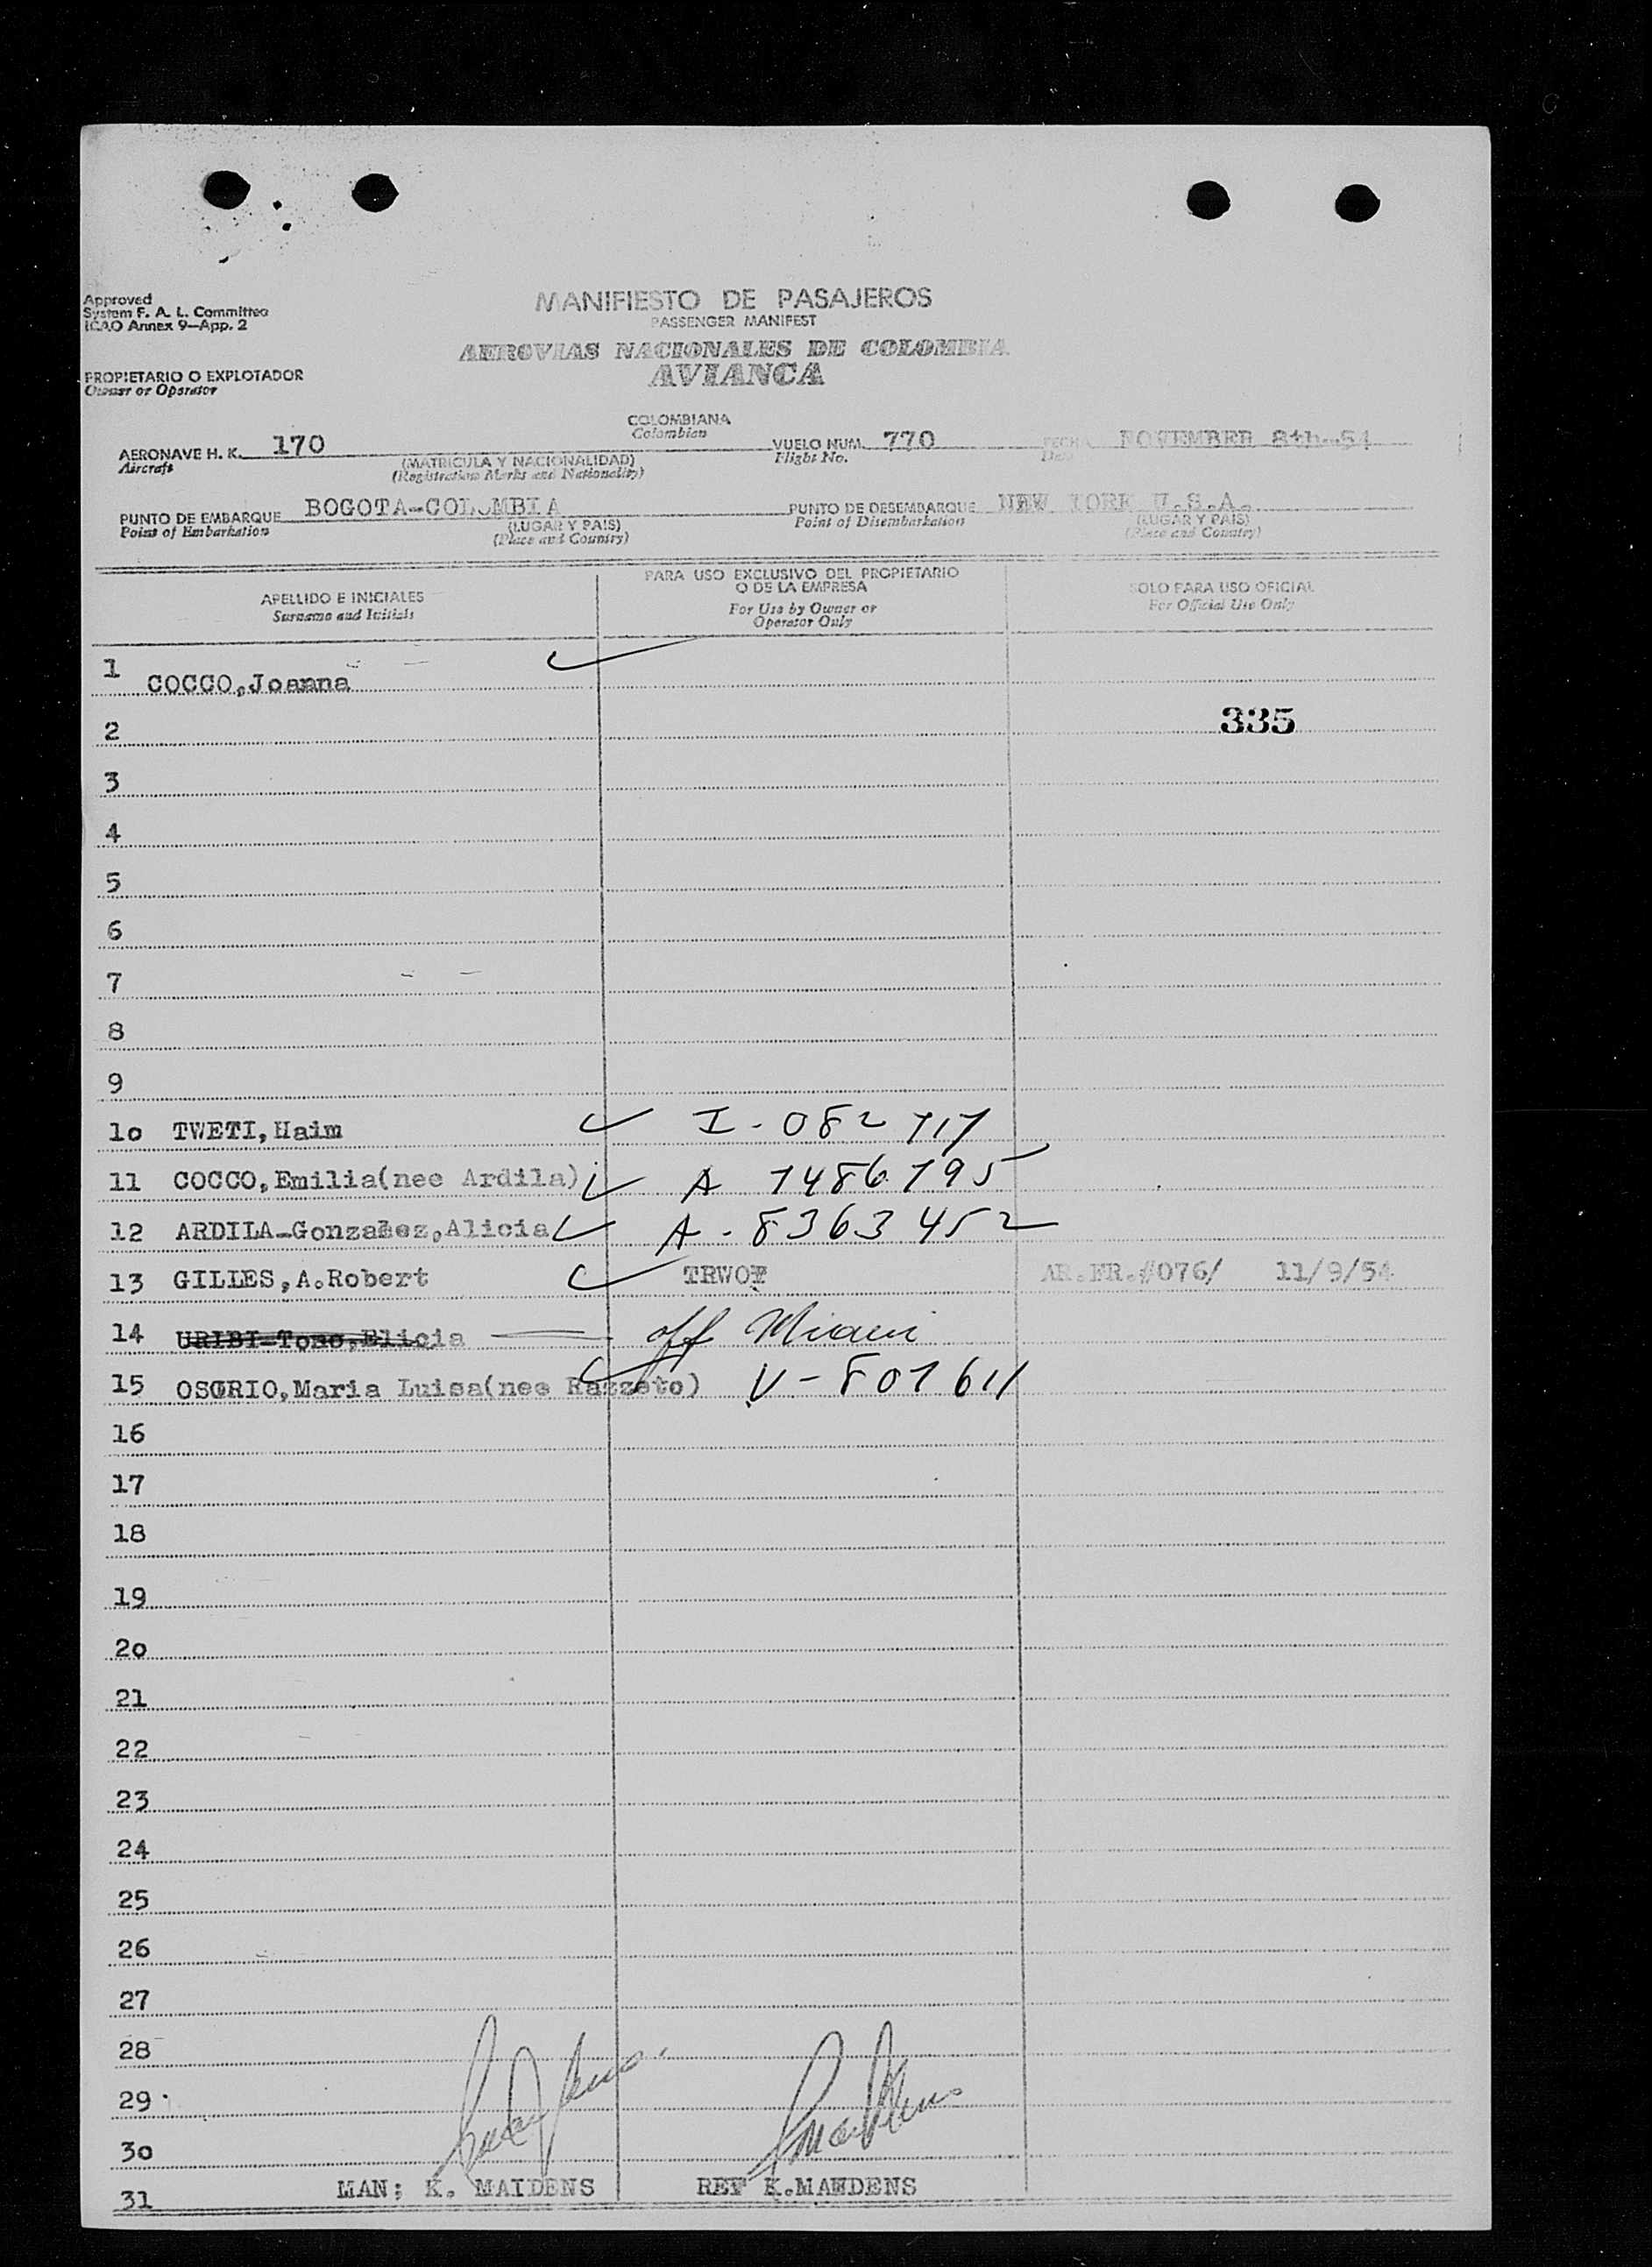 Approved
System F. A. L. Committee
ICAO Annex 9—App. 2
MANIFIESTO DE PASAJEROS
PASSENGER MANIFEST
AEROVIAS NACIONALES DE COLOMBIA
AVIANCA
PROPIETARIO O EXPLOTADOR
Owner or Operator
COLOMBIANA
Colombian
AERONAVE H. K. 170 VUELO NUM. 770 FECHA NOVEMBER 8th-54
Aircraft (MATRICULA Y NACIONALIDAD) Flight No. Date
(Registration Marks and Nationality)
PUNTO DE EMBARQUE BOGOTA-COLOMBIA PUNTO DE DESEMBARQUE NEW YORK U.S.A.
Point of Embarkation (LUGAR Y PAIS) Point of Disembarkation (LUGAR Y PAIS)
(Place and Country) (Place and Country)
APELLIDO E INICIALES PARA USO EXCLUSIVO DEL PROPIETARIO O DE LA EMPRESA SOLO PARA USO OFICIAL
Surname and Initials For Use by Owner or Operator Only For Official Use Only
1 COCCO,Joanna
2 335
3
4
5
6
7
8
9
10 TWETI,Haim I-082717
11 COCCO,Emilia(nee Ardila) A 7486795
12 ARDILA-Gonzalez,Alicia A-8363452
13 GILLES,A.Robert TRWOT AR.FR.#076/ 11/9/54
14 URIBI-Toro,Elicia off Miami
15 OSORIO,Maria Luisa(nee Razzeto) V-801611
16
17
18
19
20
21
22
23
24
25
26
27
28
29
30
31 MAN; K. MAIDENS REF K.MAEDENS